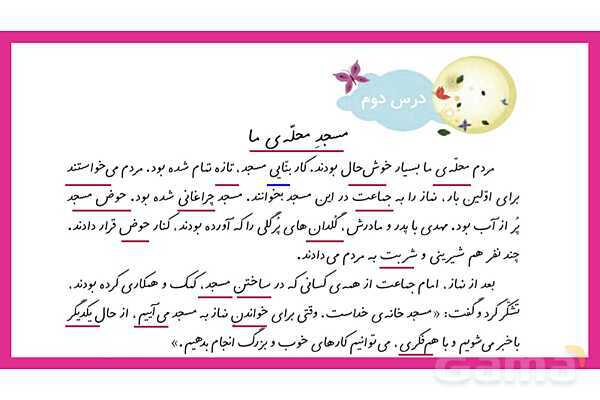 درس دوم
مسجدِ محلّه‌ی ما
مردم محلّه‌ی ما بسیار خوش‌حال بودند. کار بنّایی مسجد، تازه تمام شده بود. مردم می‌خواستند
برای اوّلین بار، نماز را به جماعت در این مسجد بخوانند. مسجد چراغانی شده بود. حوض مسجد
پُر از آب بود. مهدی با پدر و مادرش، گلدان‌های پُرگلی را که آورده بودند، کنار حوض قرار دادند.
چند نفر هم شیرینی و شربت به مردم می‌دادند.
بعد از نماز، امام جماعت از همه‌ی کسانی که در ساختن مسجد، کمک و همکاری کرده بودند،
تشکّر کرد و گفت: «مسجد خانه‌ی خداست. وقتی برای خواندن نماز به مسجد می‌آییم، از حال یکدیگر
باخبر می‌شویم و با هم‌فکری، می‌توانیم کارهای خوب و بزرگ انجام بدهیم.»
Gama